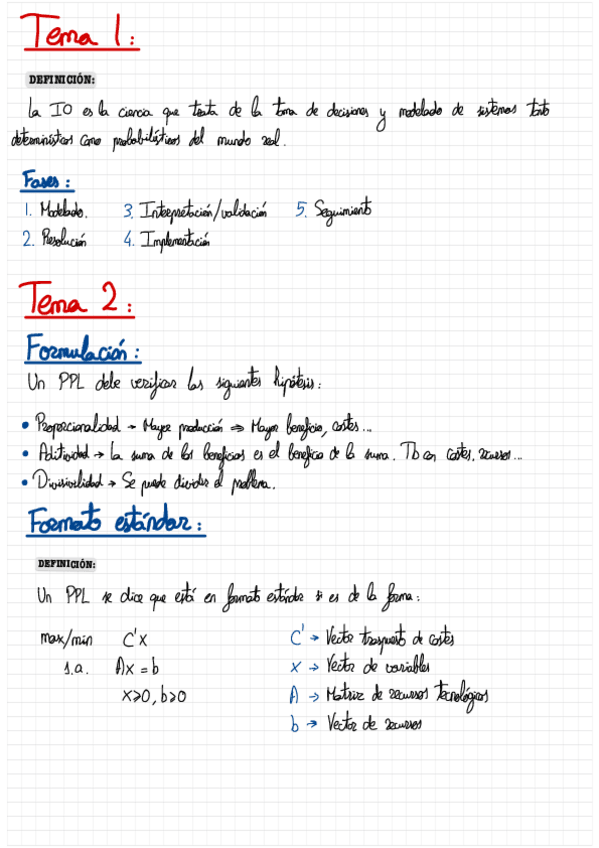 Tema 1:
DEFINICIÓN:
La IO es la ciencia que trata de la toma de decisiones y modelado de sistemas tanto
determinísticos como probabilísticos del mundo real.
Fases:
1. Modelado. 3. Interpretación/validación 5. Seguimiento
2. Resolución 4. Implementación
Tema 2:
Formulación:
Un PPL debe verificar las siguientes hipótesis:
• Proporcionalidad → Mayor producción ⇒ Mayor beneficio, costes...
• Aditividad → La suma de los beneficios es el beneficio de la suma. Tb con costes, recursos...
• Divisibilidad → Se puede dividir el problema.
Formato estándar:
DEFINICIÓN:
Un PPL se dice que está en formato estándar si es de la forma:
max/min C'x C' → Vector traspuesto de costes
s.a. Ax = b x → Vector de variables
x≥0, b≥0 A → Matriz de recursos tecnológicos
b → Vector de recursos